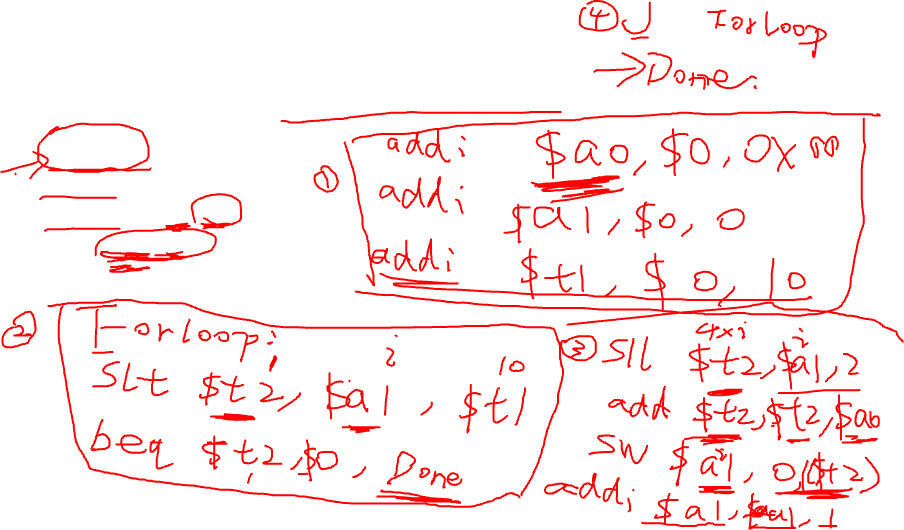 ④ J Forloop
→Done.
① addi $a0, $0, 0x00
addi $a1, $0, 0
addi $t1, $0, 10
② Forloop:
i 10
Slt $t2, $a1, $t1
beq $t2, $0, Done
4xi i
③ Sll $t2, $a1, 2
add $t2, $t2, $a0
i
SW $a1, 0($t2)
addi $a1, $a1, 1